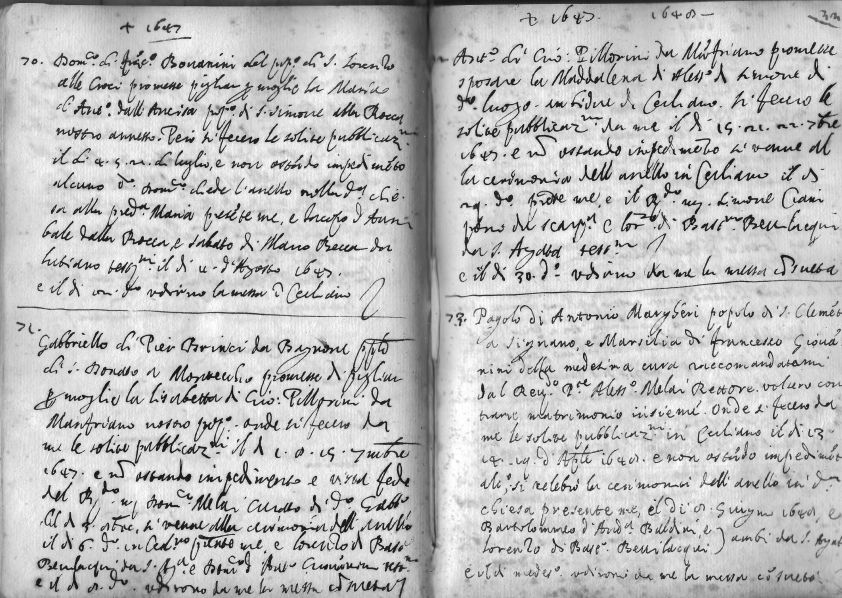 + 1647
70. Dom.co di Fran.co Bonanini del pop.o di S. Lorenzo
alle Croci promesse pigliar p moglie la Maria
di Ant.o dall'Ancisa pop.o di S. Simone alla Rocca
nostro annesso. Però si fecero le solite pubblicaz.ni
il dì 2. di luglio, e non ostãdo impedimẽto
alcuno d.o Dom.co diede l'anello nella d.a chie-
sa alla pred.a Maria presẽte me, e Iacopo d'Anni
bale dalla Rocca, e Sabato di Mario Becca da
lutiano test.ni il dì 4. d'Agosto 1647.
e il dì d.o udirono la messa ĩ Ceciliano
71.
Gabbriello di Pier Brinci da Bagnone
di S. Donato a promesse di pigliar
p moglie la lisabetta di Gio: Pillorini da
Manfriano nostro pop.o onde si fecero da
me le solite pubblicaz.ni il dì 1. 8. 15. 7mbre
1647. e nõ ostando impedimento e vista fede
del R.do Dom.co Melai Curato di d.o Gabb.o
il dì 4. ottre, si venne alla cerimonia dell'anello
il dì 6. d.o in Cec.no pnte me, e lorenzo di Bast.o
Bevilacqui da S. Ag.a e Dom.co d'Ant.o test.ni
e il dì 8. d.o udirono da me la messa cõsueta
+ 1647. 1648 —
Ant.o di Gio: Pillorini da Mãfriano promesse
sposare la Maddalena di Aless.o di Simone di
d.o luogo. ambidue di Ceciliano. si fecero le
solite pubblicaz.ni da me il dì 15. 21. 22. 7bre
1647. e nõ ostando impedimẽto si venne al
la cerimonia dell'anello in Ceciliano il dì
29. d.o presẽte me, e il R.do Simone Ciam
poni da Scarp.a e lor.zo di Bast.no Bevilacqui
da S. Agata test.ni
e il dì 30. d.o udirono da me la messa cõsueta
73. Pagolo di Antonio Margheri popolo di S. Clemẽt
a Signano, e Marsilia di Francesco Giouã
nini della medesima cura raccomandatami
dal Reu.do P.re Aless.o Melai Rettore. volsero con
trarre matrimonio insieme. Onde si fecero da
me le solite pubblicaz.ni in Ceciliano il dì 13
14. 19. d'Aple 1648. e non ostãdo impedimẽt
alc.o si celebrò la cerimonia dell'anello in d.a
chiesa presente me, il dì 8. Giugno 1648, e
Bartolommeo d'And.a Baldini, e
lorenzo di Bast.o Bevilacqui } ambi da S. Agat
e il dì medes.o udirono da me la messa cõsueta